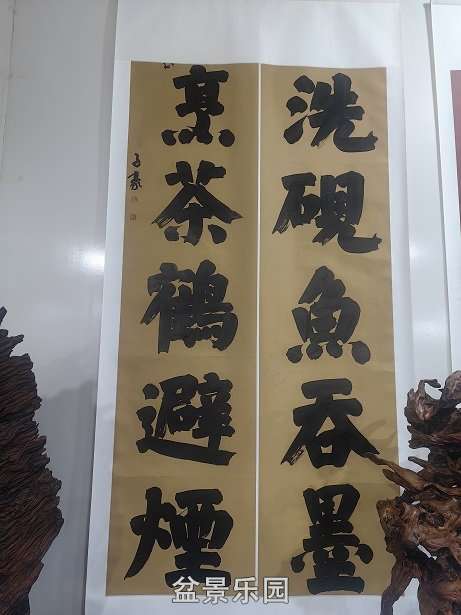 洗硯魚吞墨
烹茶鶴避煙
子豪
盆景乐园